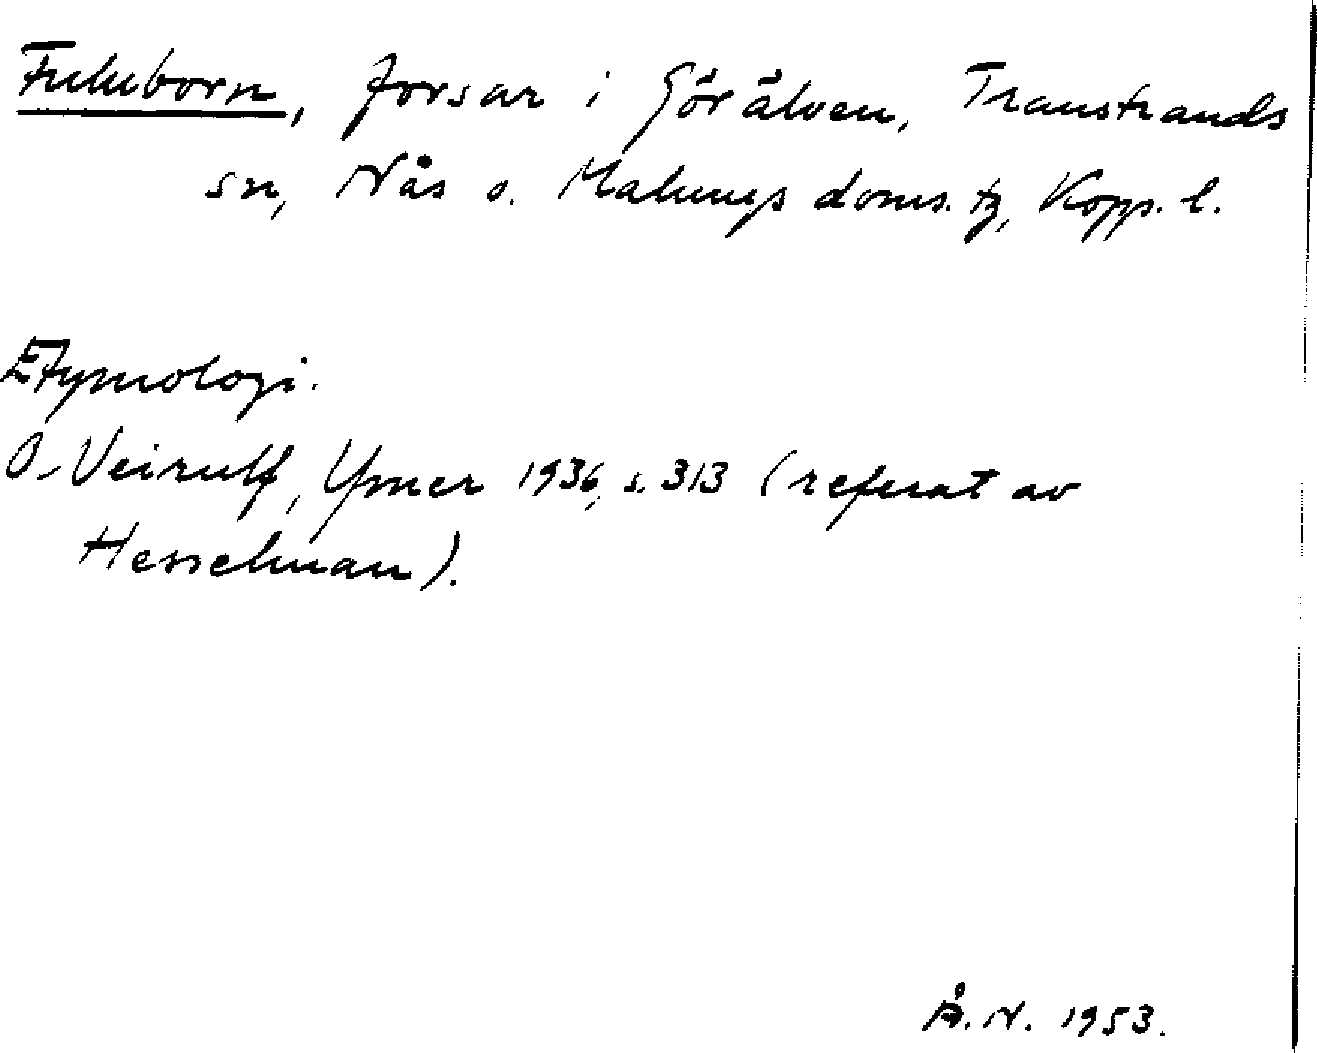 Fuluborn, forsar i Görälven, Transtrands
sn, Nås o. Malungs doms. tg, Kopp. l.
Etymologi.
O. Veirulf, Ymer 1936, s. 313 (referat av
Hesselman).
Å. N. 1953.